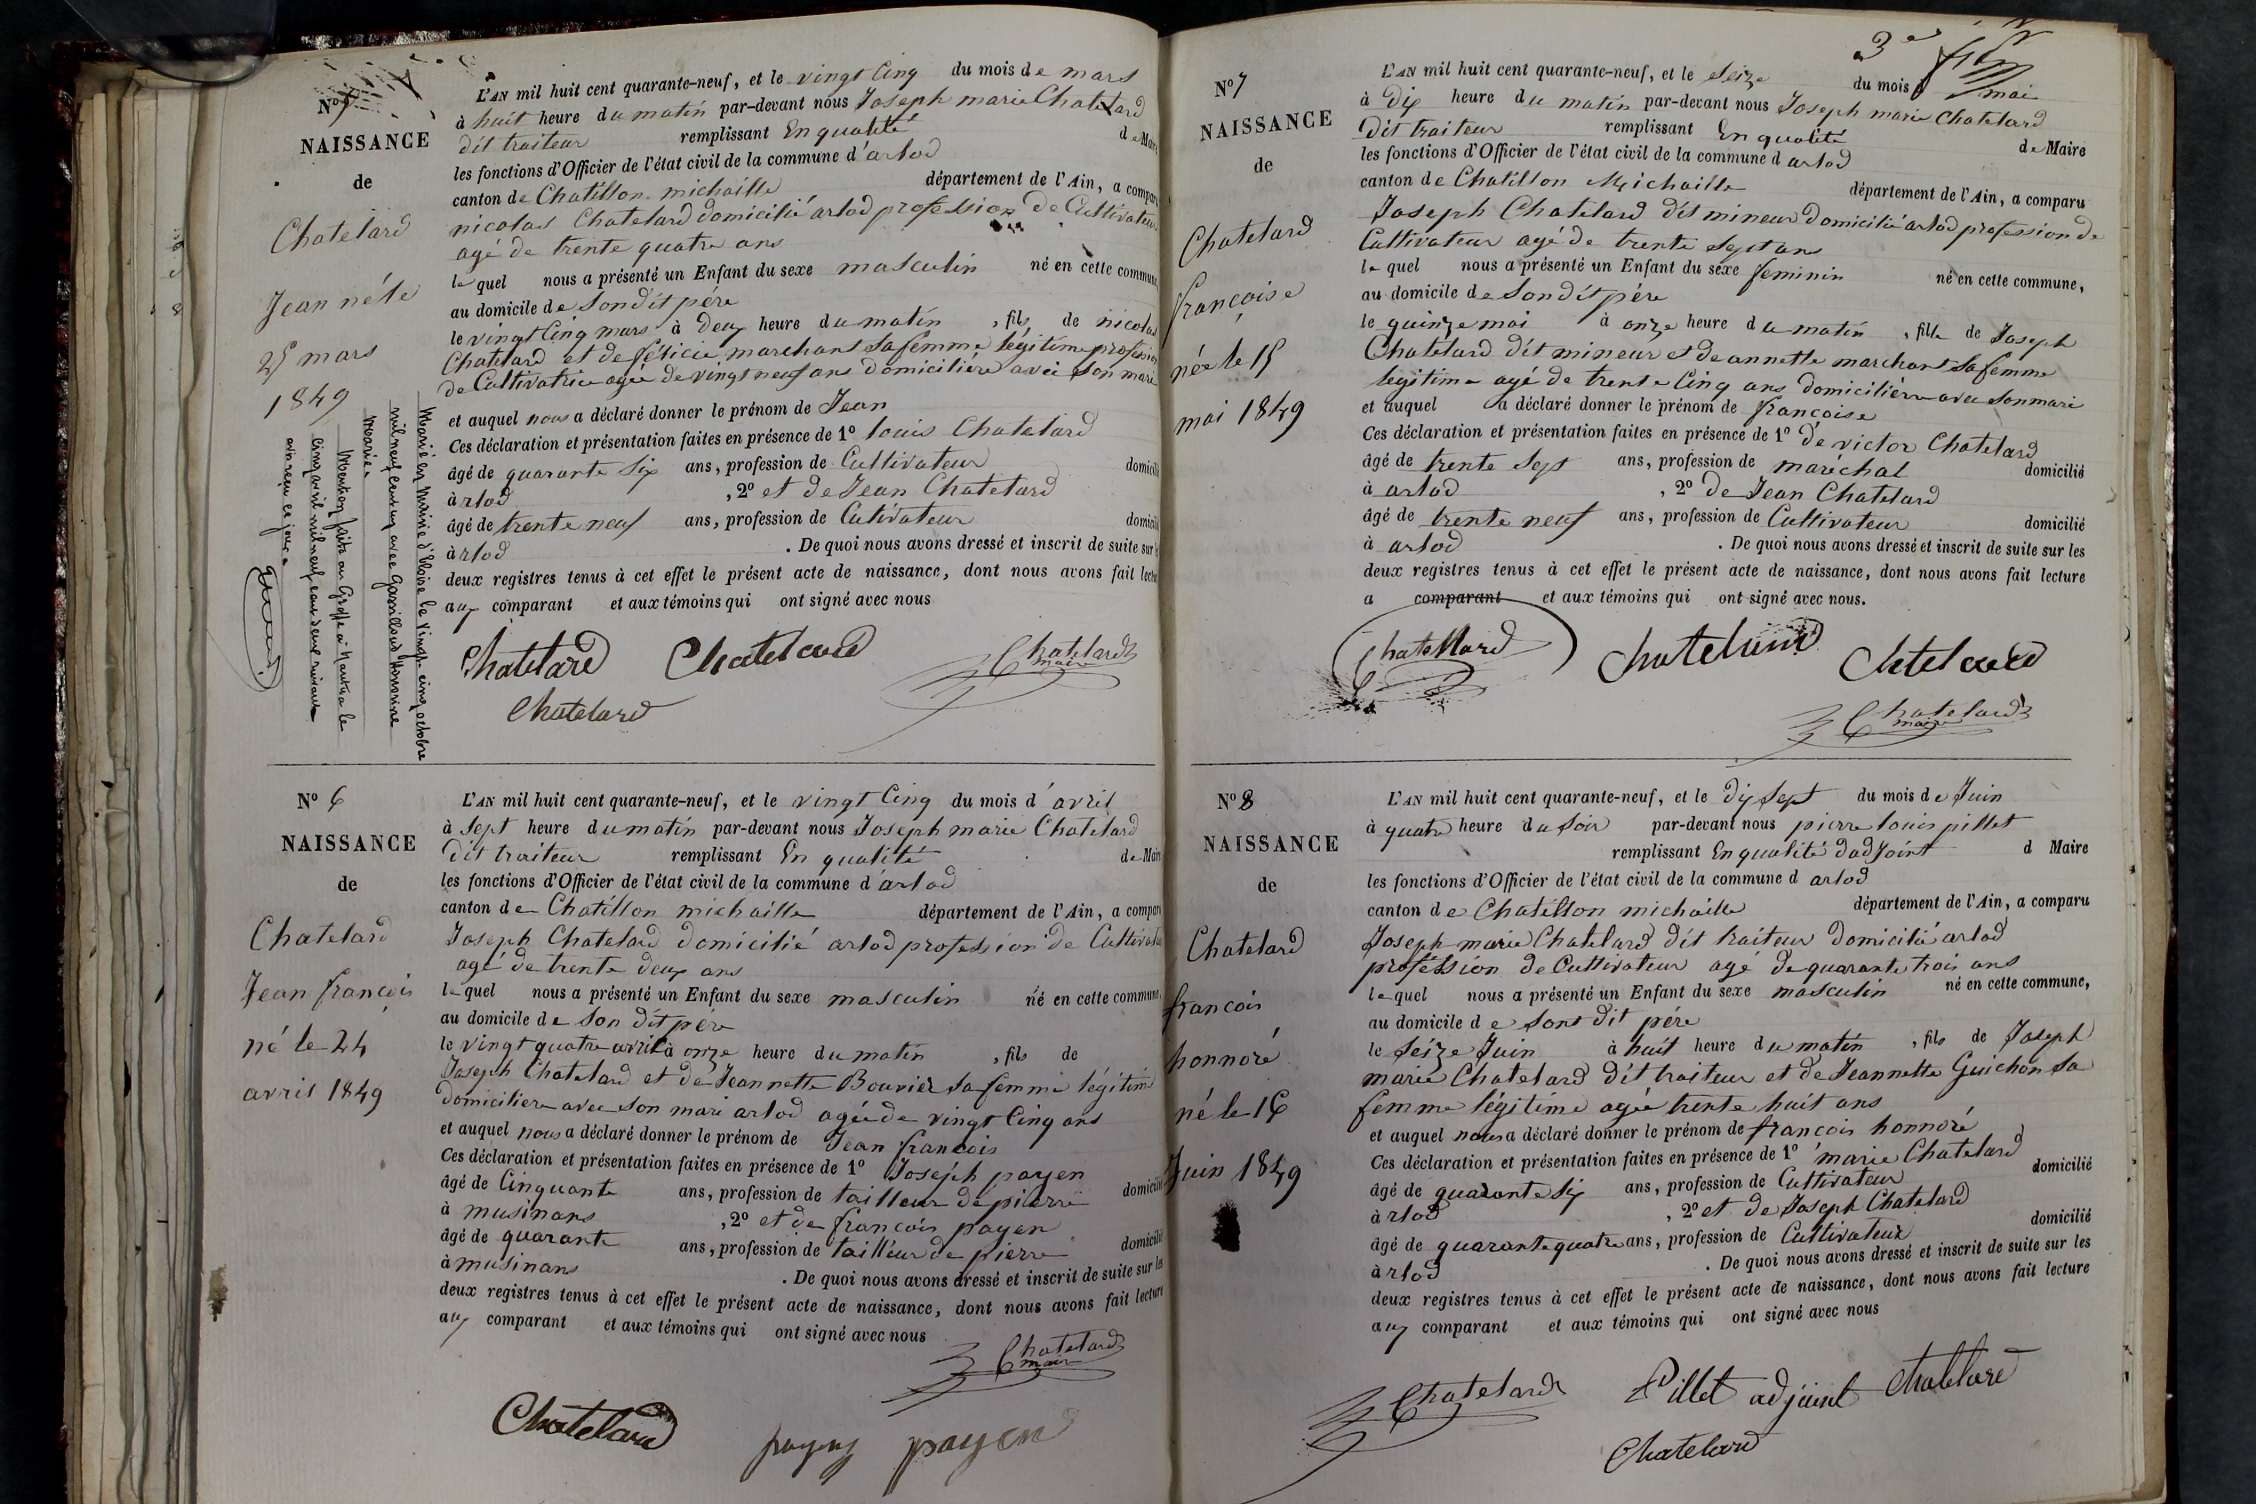 Nº 5
NAISSANCE
de
Chatelard
Jean né le
25 mars
1849
Marié en Mairie d'Eloise le vingt-cinq octobre
mil neuf cent un avec Gavilloud Honorine
Marie.
Mention faite au Greffe à Nantua le
cinq avril mil neuf cent deux suivant
avis reçu ce jour.
L'AN mil huit cent quarante-neuf, et le vingt Cinq du mois de mars
à huit heure du matin par-devant nous Joseph marie Chatelard
dit traiteur remplissant En qualité de Maire
les fonctions d'Officier de l'état civil de la commune d'arlod
canton de Chatillon michaille département de l'Ain, a comparu
nicolas Chatelard domicilié arlod profession de Cultivateur
agé de trente quatre ans
le quel nous a présenté un Enfant du sexe masculin né en cette commune,
au domicile de Son dit père
le vingt Cinq mars à Deux heure du matin, fils de nicolas
Chatelard et de félicie marchant Sa femme légitime profession
de Cultivatrice agée de vingt neuf ans domicilière avec Son mari
et auquel nous a déclaré donner le prénom de Jean
Ces déclaration et présentation faites en présence de 1º louis Chatelard
âgé de quarante Six ans, profession de Cultivateur domicilié
à rlod, 2º et de Jean Chatelard
âgé de trente neuf ans, profession de Cutivateur domicilié
à rlod. De quoi nous avons dressé et inscrit de suite sur les
deux registres tenus à cet effet le présent acte de naissance, dont nous avons fait lecture
aux comparant et aux témoins qui ont signé avec nous
Chatelard Chatelard Chatelard
maire
Chatelard
Nº 6
NAISSANCE
de
Chatelard
Jean françois
né le 24
avril 1849
L'AN mil huit cent quarante-neuf, et le vingt Cinq du mois d'avril
à Sept heure du matin par-devant nous Joseph marie Chatelard
dit traiteur remplissant En qualité de Maire
les fonctions d'Officier de l'état civil de la commune d'arlod
canton de Chatillon michaille département de l'Ain, a comparu
Joseph Chatelard domicilié arlod profession de Cultivateur
agé de trente deux ans
le quel nous a présenté un Enfant du sexe masculin né en cette commune,
au domicile de Son dit père
le vingt quatre avril à onze heure du matin, fils de
Joseph Chatelard et de Jeannette Bouvier Sa femme légitime
domiciliere avec son mari arlod agée de vingt Cinq ans
et auquel nous a déclaré donner le prénom de Jean francois
Ces déclaration et présentation faites en présence de 1º Joseph payen
âgé de Cinquante ans, profession de tailleur de pierre domicilié
à musinans, 2º et de françois payen
âgé de quarante ans, profession de tailleur de pierre domicilié
à musinans. De quoi nous avons dressé et inscrit de suite sur les
deux registres tenus à cet effet le présent acte de naissance, dont nous avons fait lecture
aux comparant et aux témoins qui ont signé avec nous
Chatelard
maire
Chatelard payen payen
3e
Nº 7
NAISSANCE
de
Chatelard
françoise
née le 15
mai 1849
L'AN mil huit cent quarante-neuf, et le Seize du mois mai
à Dix heure du matin par-devant nous Joseph marie Chatelard
Dit traiteur remplissant En qualité de Maire
les fonctions d'Officier de l'état civil de la commune d arlod
canton de Chatillon Michaille département de l'Ain, a comparu
Joseph Chatelard dit mineur Domicilié arlod profession de
Cultivateur agé de trente Sept ans
le quel nous a présenté un Enfant du sexe feminin né en cette commune,
au domicile de Son dit père
le quinze mai à onze heure du matin, fille de Joseph
Chatelard dit mineur et de annette marchant Sa femme
legitime agé de trente Cinq ans domicilière avec Son mari
et auquel a déclaré donner le prénom de françoise
Ces déclaration et présentation faites en présence de 1º de victor Chatelard
âgé de trente Sept ans, profession de maréchal domicilié
à arlod, 2º de Jean Chatelard
âgé de trente neuf ans, profession de Cultivateur domicilié
à arlod. De quoi nous avons dressé et inscrit de suite sur les
deux registres tenus à cet effet le présent acte de naissance, dont nous avons fait lecture
a comparant et aux témoins qui ont signé avec nous.
Chatellard Chatelard Chtelard
Chatelard
maire
Nº 8
NAISSANCE
de
Chatelard
francois
honnoré
né le 16
Juin 1849
L'AN mil huit cent quarante-neuf, et le Dix Sept du mois de Juin
à quatre heure du Soir par-devant nous pierre louis pillet
remplissant En qualité dadJoint d Maire
les fonctions d'Officier de l'état civil de la commune d arlod
canton de Chatillon michaille département de l'Ain, a comparu
Joseph marie Chatelard dit traiteur domicilié arlod
proféssion de Cultivateur agé de quarante trois ans
le quel nous a présenté un Enfant du sexe masculin né en cette commune,
au domicile de Sont dit père
le Seize Juin à huit heure du matin, fils de Joseph
marie Chatelard dit traiteur et de Jeannette Guichon Sa
femme légitime agée trente huit ans
et auquel nous a déclaré donner le prénom de françois honnoré
Ces déclaration et présentation faites en présence de 1º marie Chatelard
âgé de quarante Six ans, profession de Cultivateur domicilié
à rlod, 2º et de Joseph Chatelard
âgé de quarante quatre ans, profession de Cultivateur domicilié
à rlod. De quoi nous avons dressé et inscrit de suite sur les
deux registres tenus à cet effet le présent acte de naissance, dont nous avons fait lecture
aux comparant et aux témoins qui ont signé avec nous
Chatelard Pillet adjoint Chatelard
Chatelard